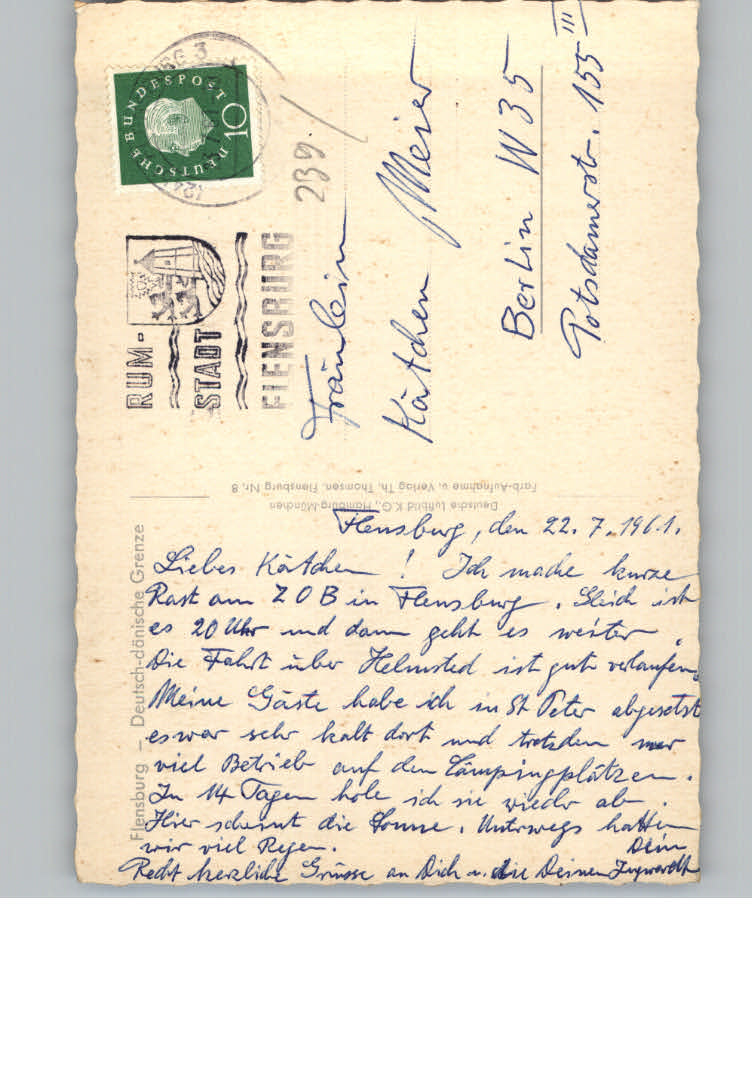 Flensburg, den 22. 7. 1961.
Liebes Kätchen! Ich mache kurze
Rast am ZOB in Flensburg. Gleich ist
es 20 Uhr und dann geht es weiter.
Die Fahrt über Helmsted ist gut verlaufen.
Meine Gäste habe ich in St Peter abgesetzt
es war sehr kalt dort und trotzdem war
viel Betrieb auf den Cämpingplätzen.
In 14 Tagen hole ich sie wieder ab.
Hier scheint die Sonne. Unterwegs hatten
wir viel Regen. Dein
Recht herzliche Grüsse an Dich u. die Deinen
Flensburg – Deutsch-dänische Grenze
Deutsche Luftbild K.G., Hamburg-München
Farb-Aufnahme u. Verlag Th. Thomsen, Flensburg Nr. 8
DEUTSCHE BUNDESPOST
10
RUM-
STADT
FLENSBURG
239
Fräulein
Kätchen Meier
Berlin W 35
Potsdamerstr. 155 III